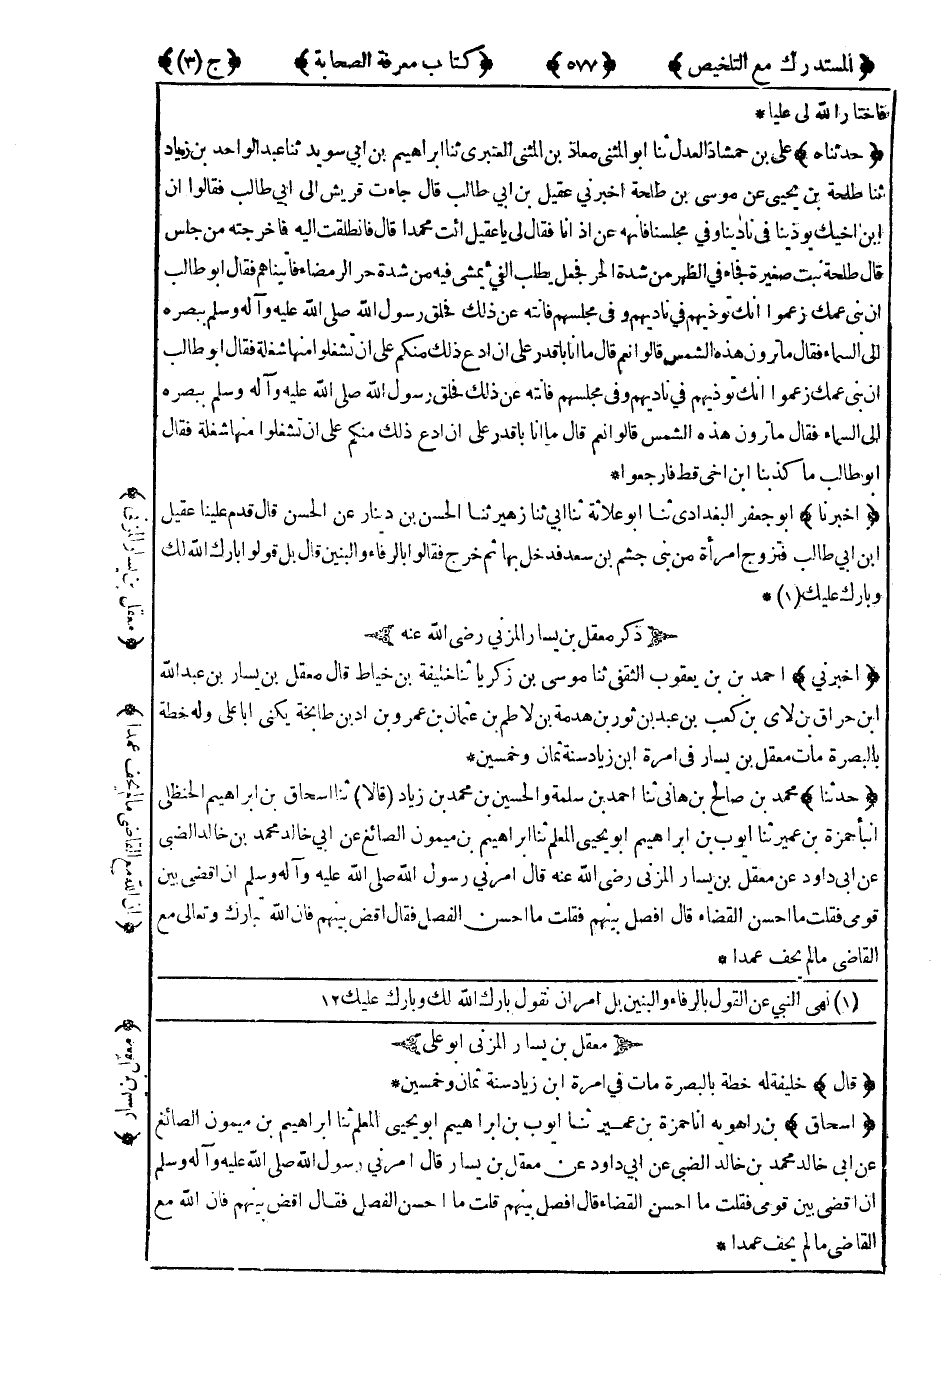 ﴿ المستدرك مع التلخيص ﴾ ﴿ ٥٧٧ ﴾ ﴿ كتاب معرفة الصحابة ﴾ ﴿ ج (٣) ﴾
فاختار الله لى عليا *
﴿ حدثناه ﴾ على بن حمشاذ العدل ثنا ابو المثنى معاذ بن المثنى العنبرى ثنا ابراهيم بن ابي سويد ثنا عبد الواحد بن زياد
ثنا طلحة بن يحيى عن موسى بن طلحة اخبرني عقيل بن ابي طالب قال جاءت قريش الى ابي طالب فقالوا ان
ابن اخيك يوذينا فى نادينا وفي مجلسنا فانهه عن اذانا فقال لى ياعقيل ائت محمدا قال فانطلقت اليه فاخرجته من جلس
قال طلحة بيت صغيرة فجاء في الظهر من شدة الحر فجعل يطلب الفئ يمشى فيه من شدة حر الرمضاء فأتيناهم فقال ابو طالب
ان بنى عمك زعموا انك توذيهم في ناديهم و فى مجلسهم فانته عن ذلك فحلق رسول الله صلى الله عليه وآله وسلم ببصره
الى السماء فقال ماترون هذه الشمس قالوا نعم قال ما انا باقدر على ان ادع ذلك منكم على ان تشغلوا منها شغلة فقال ابو طالب
ان بنى عمك زعموا انك توذيهم في ناديهم وفى مجلسهم فانته عن ذلك فحلق رسول الله صلى الله عليه وآله وسلم ببصره
الى السماء فقال ماترون هذه الشمس قالوا نعم قال ما انا باقدر على ان ادع ذلك منكم على ان تشغلوا منها شغلة فقال
ابو طالب ما كذبنا ابن اخى قط فارجعوا *
﴿ اخبرنا ﴾ ابو جعفر البغدادى ثنا ابو علاثة ثنا ابي ثنا زهير ثنا الحسن بن دينار عن الحسن قال قدم علينا عقيل
ابن ابي طالب فتزوج امرأة من بنى جشم بن سعد فدخل بها ثم خرج فقالوا بالرفاء والبنين قال بل قولوا بارك الله لك
وبارك عليك (١) *
ذكر معقل بن يسار المزني رضى الله عنه
﴿ اخبرني ﴾ احمد بن بن يعقوب الثقفى ثنا موسى بن زكريا ثنا خليفة بن خياط قال معقل بن يسار بن عبد الله
ابن حراق بن لاى بن كعب بن عبد بن ثور بن هدمة بن لاطم بن عثمان بن عمرو بن ادبن طابخة يكنى ابا على وله خطة
بالبصرة مات معقل بن يسار فى امرة ابن زياد سنة ثمان وخمسين *
﴿ حدثنا ﴾ محمد بن صالح بن هانى ثنا احمد بن سلمة والحسين بن محمد بن زياد (قالا) ثنا اسحاق بن ابراهيم الحنظلى
انبأ حمزة بن عمير ثنا ايوب بن ابراهيم ابو يحيى المعلم ثنا ابراهيم بن ميمون الصائغ عن ابي خالد محمد بن خالد الضبى
عن ابى داود عن معقل بن يسار المزنى رضى الله عنه قال امرني رسول الله صلى الله عليه وآله وسلم ان اقضى بين
قومى فقلت ما احسن القضاء قال افصل بينهم فقلت ما احسن الفصل فقال اقض بينهم فان الله تبارك وتعالى مع
القاضى مالم يحف عمدا *
(١) نهى النبي عن القول بالرفاء والبنين بل امر ان نقول بارك الله لك وبارك عليك ١٢
معقل بن يسار المزنى ابو على
﴿ قال ﴾ خليفة له خطة بالبصرة مات في امرة ابن زياد سنة ثمان وخمسين *
﴿ اسحاق ﴾ بن راهويه انا حمزة بن عمير ثنا ايوب بن ابراهيم ابو يحيى المعلم ثنا ابراهيم بن ميمون الصائغ
عن ابى خالد محمد بن خالد الضبى عن ابي داود عن معقل بن يسار قال امرني رسول الله صلى الله عليه وآله وسلم
ان اقضى بين قومى فقلت ما احسن القضاء قال افصل بينهم قلت ما احسن الفصل فقال اقض بينهم فان الله مع
القاضى مالم يحف عمدا *
﴿ معقل بن يسار المزنى ﴾
﴿ ان الله مع القاضى مالم يحف عمدا ﴾